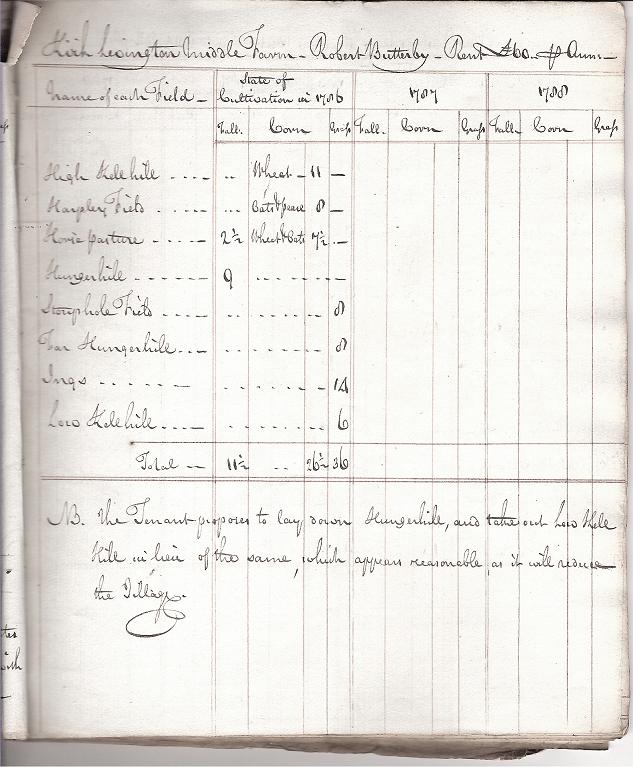 Kirk Levington Middle Farm - Robert Butterby - Rent £60. p Ann -
Name of each Field - State of Cultivation in 1786 1787 1788
Fall. Corn Grass Fall. Corn Grass Fall. Corn Grass
High Kelehill - - - - .. Wheat - 11 -
Harpley Field - - - - - ... Oats & pease 8 -
Horse pasture - - - - 2½ Wheat & Oats 7½ . -
Hungerhill - - - - - - 9 - - - - - - - -
Stouphole Field - - - - - - - - - - - 8
Far Hungerhill - - - - - - - - - - - 8
Ings - - - - - - - - - - - - - - 14
Low Kelehill - - - - - - - - - - - - 6
Total - - 11½ .. 26½ 36
NB. the Tenant proposes to lay down Hungerhill, and take out Low Kele
Hill in lieu of the same, which appears reasonable, as it will reduce
the Tillage.